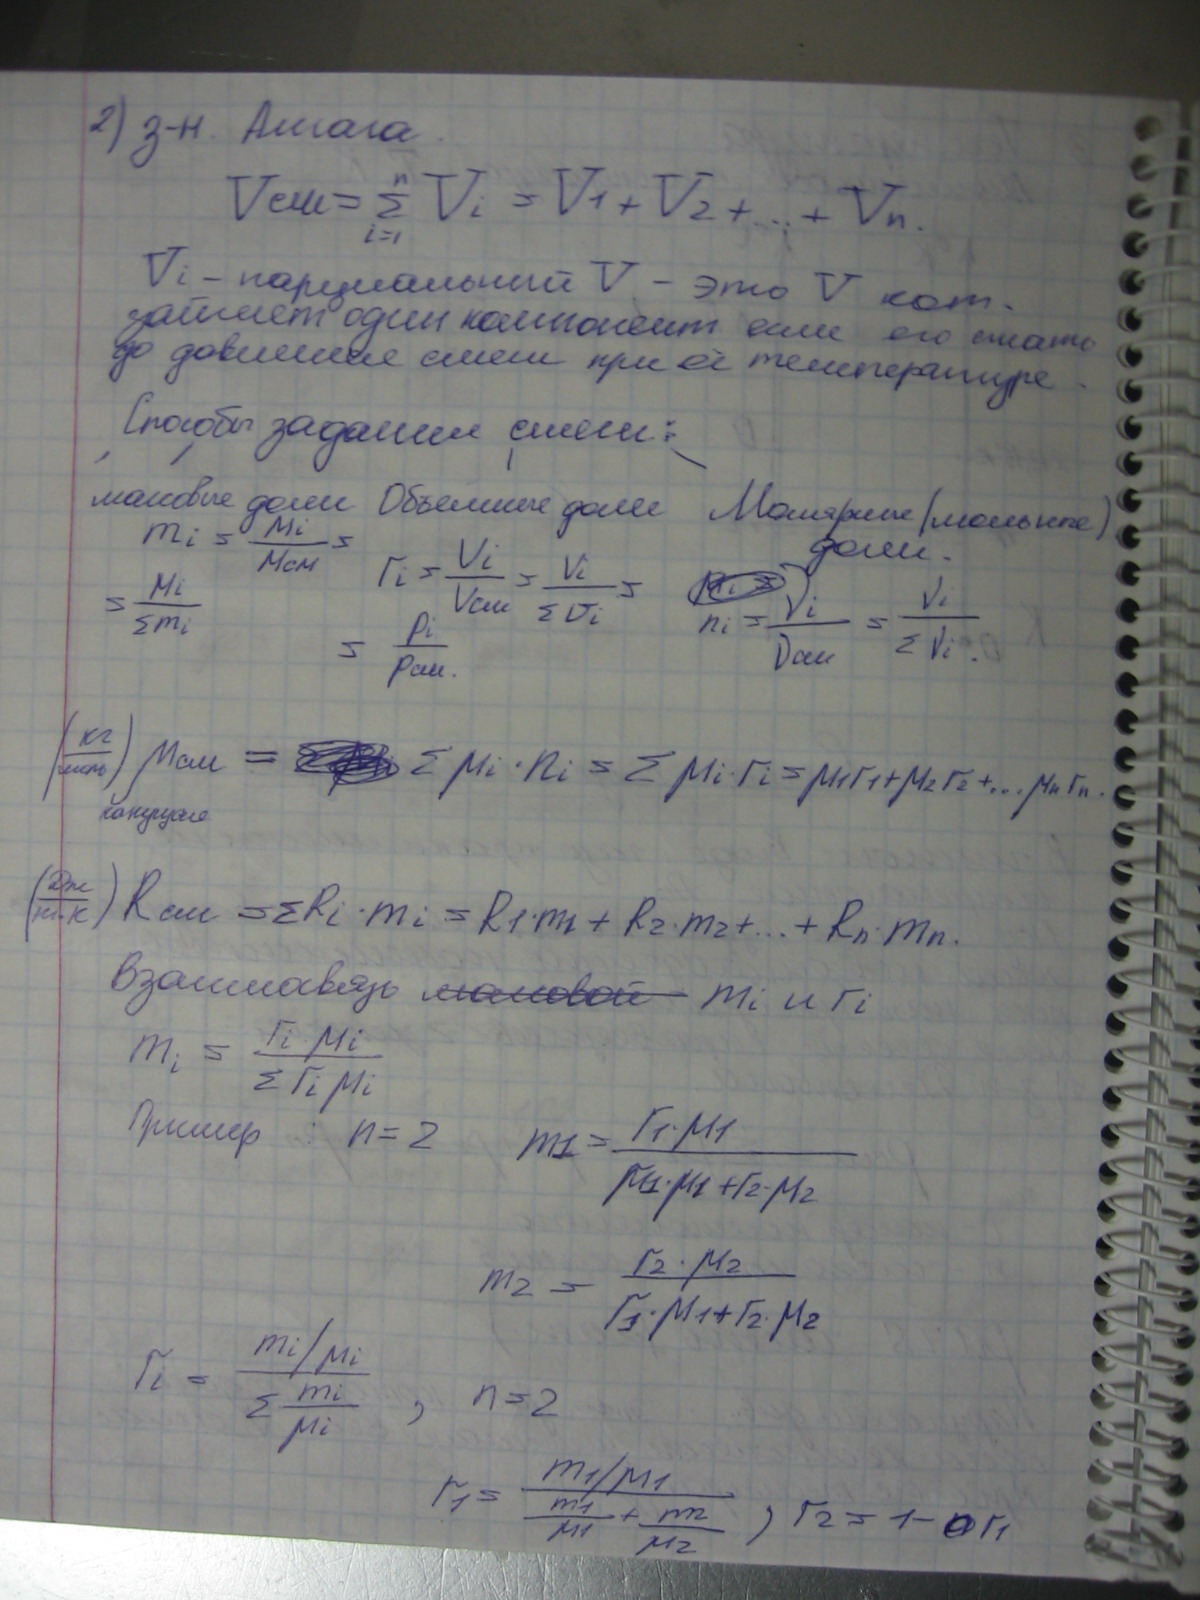 2) з-н. Амага.
Vсм = Σ Vi = V1 + V2 + ... + Vn.
n
i=1
Vi – парциальный V, – это V кот.
займет один компонент если его сжать
до давления смеси при её температуре.
Способы задания смеси:
массовые доли Объемные доли Молярные (мольные)
доли.
mi = Mi/Mсм =
= Mi/Σmi
ri = Vi/Vсм = Vi/Συi =
= pi/pсм.
ni = νi/νсм = νi/Σνi.
(кг/моль) μсм = Σ μi · ni = Σ μi · ri = μ1r1 + μ2r2 + ... μnrn.
кажущаяся
(Дж/кг·К) Rсм = ΣRi · mi = R1·m1 + R2·m2 + ... + Rn·mn.
Взаимосвязь массовой mi и ri
mi = ri·μi / Σ ri μi
Пример: n = 2 m1 = r1·μ1 / r1·μ1 + r2·μ2
m2 = r2·μ2 / r1·μ1 + r2·μ2
ri = mi/μi / Σ mi/μi , n = 2
r1 = m1/μ1 / m1/μ1 + m2/μ2 , r2 = 1 - r1